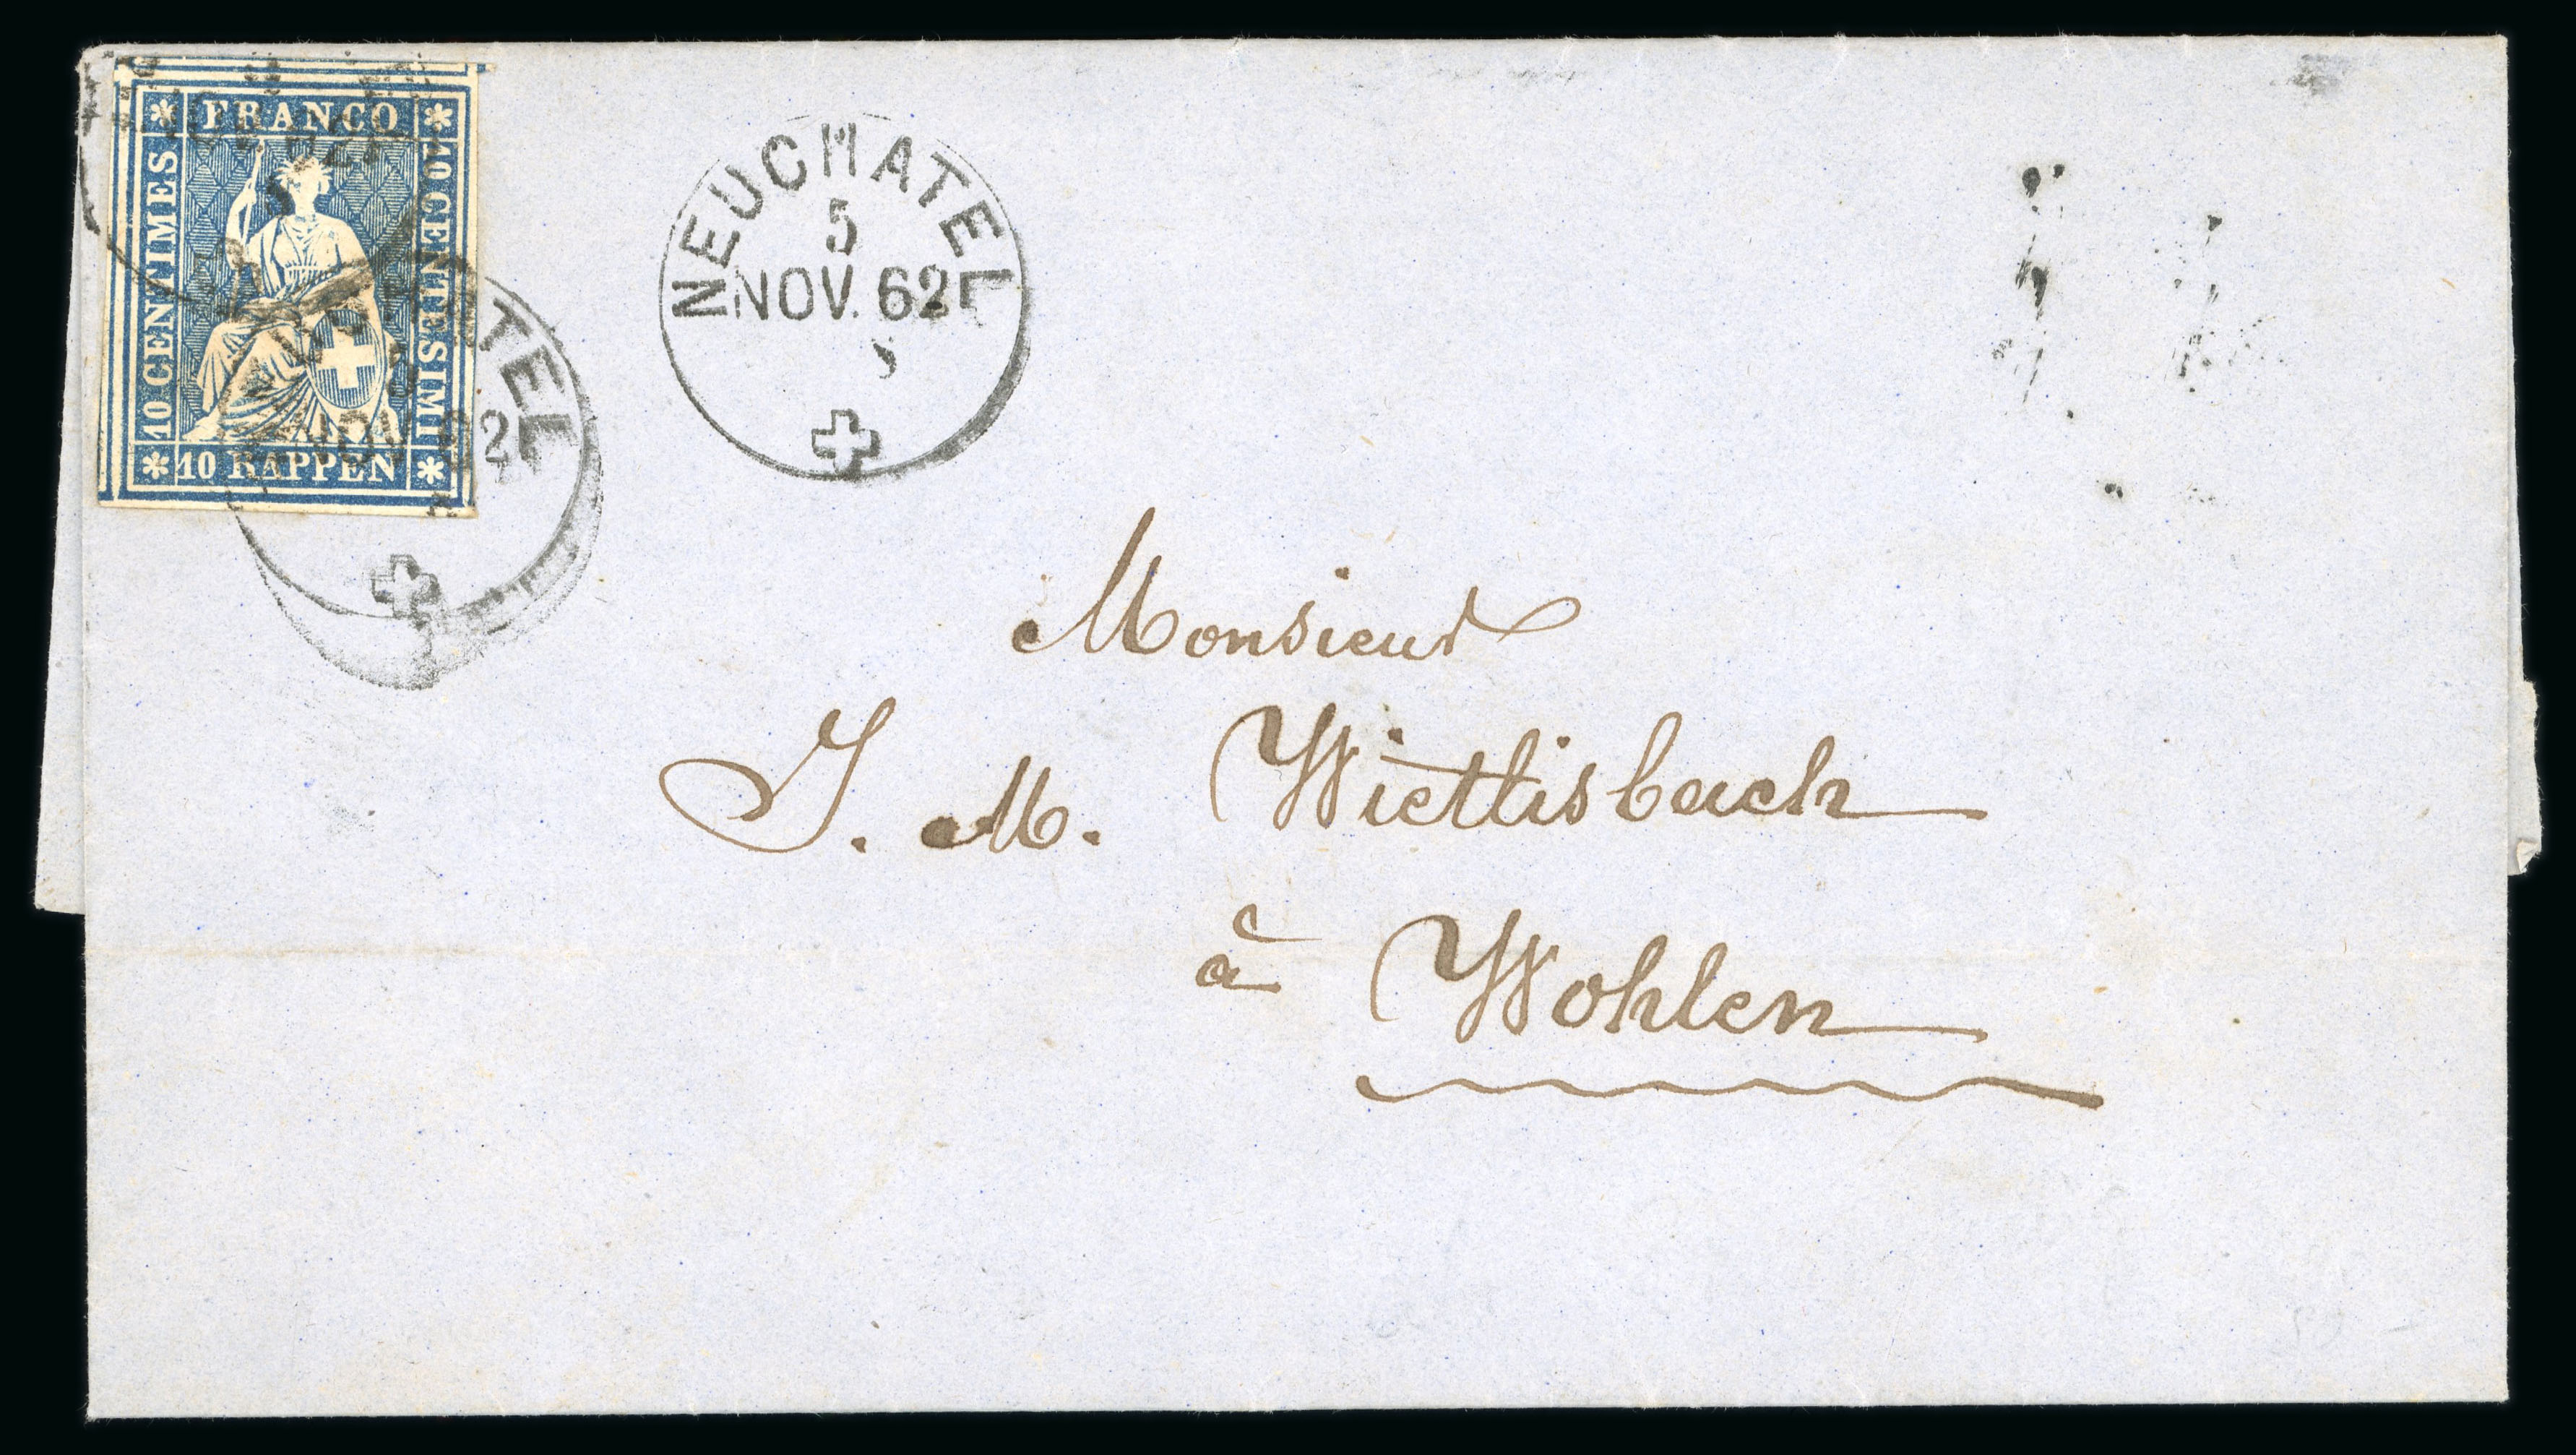 FRANCO
10 CENTIMES
10 CENTESIMI
10 RAPPEN
NEUCHATEL
5
NOV. 62
TEL
NOV 62
Monsieur
J. M. Wiettlisbach
à Wohlen